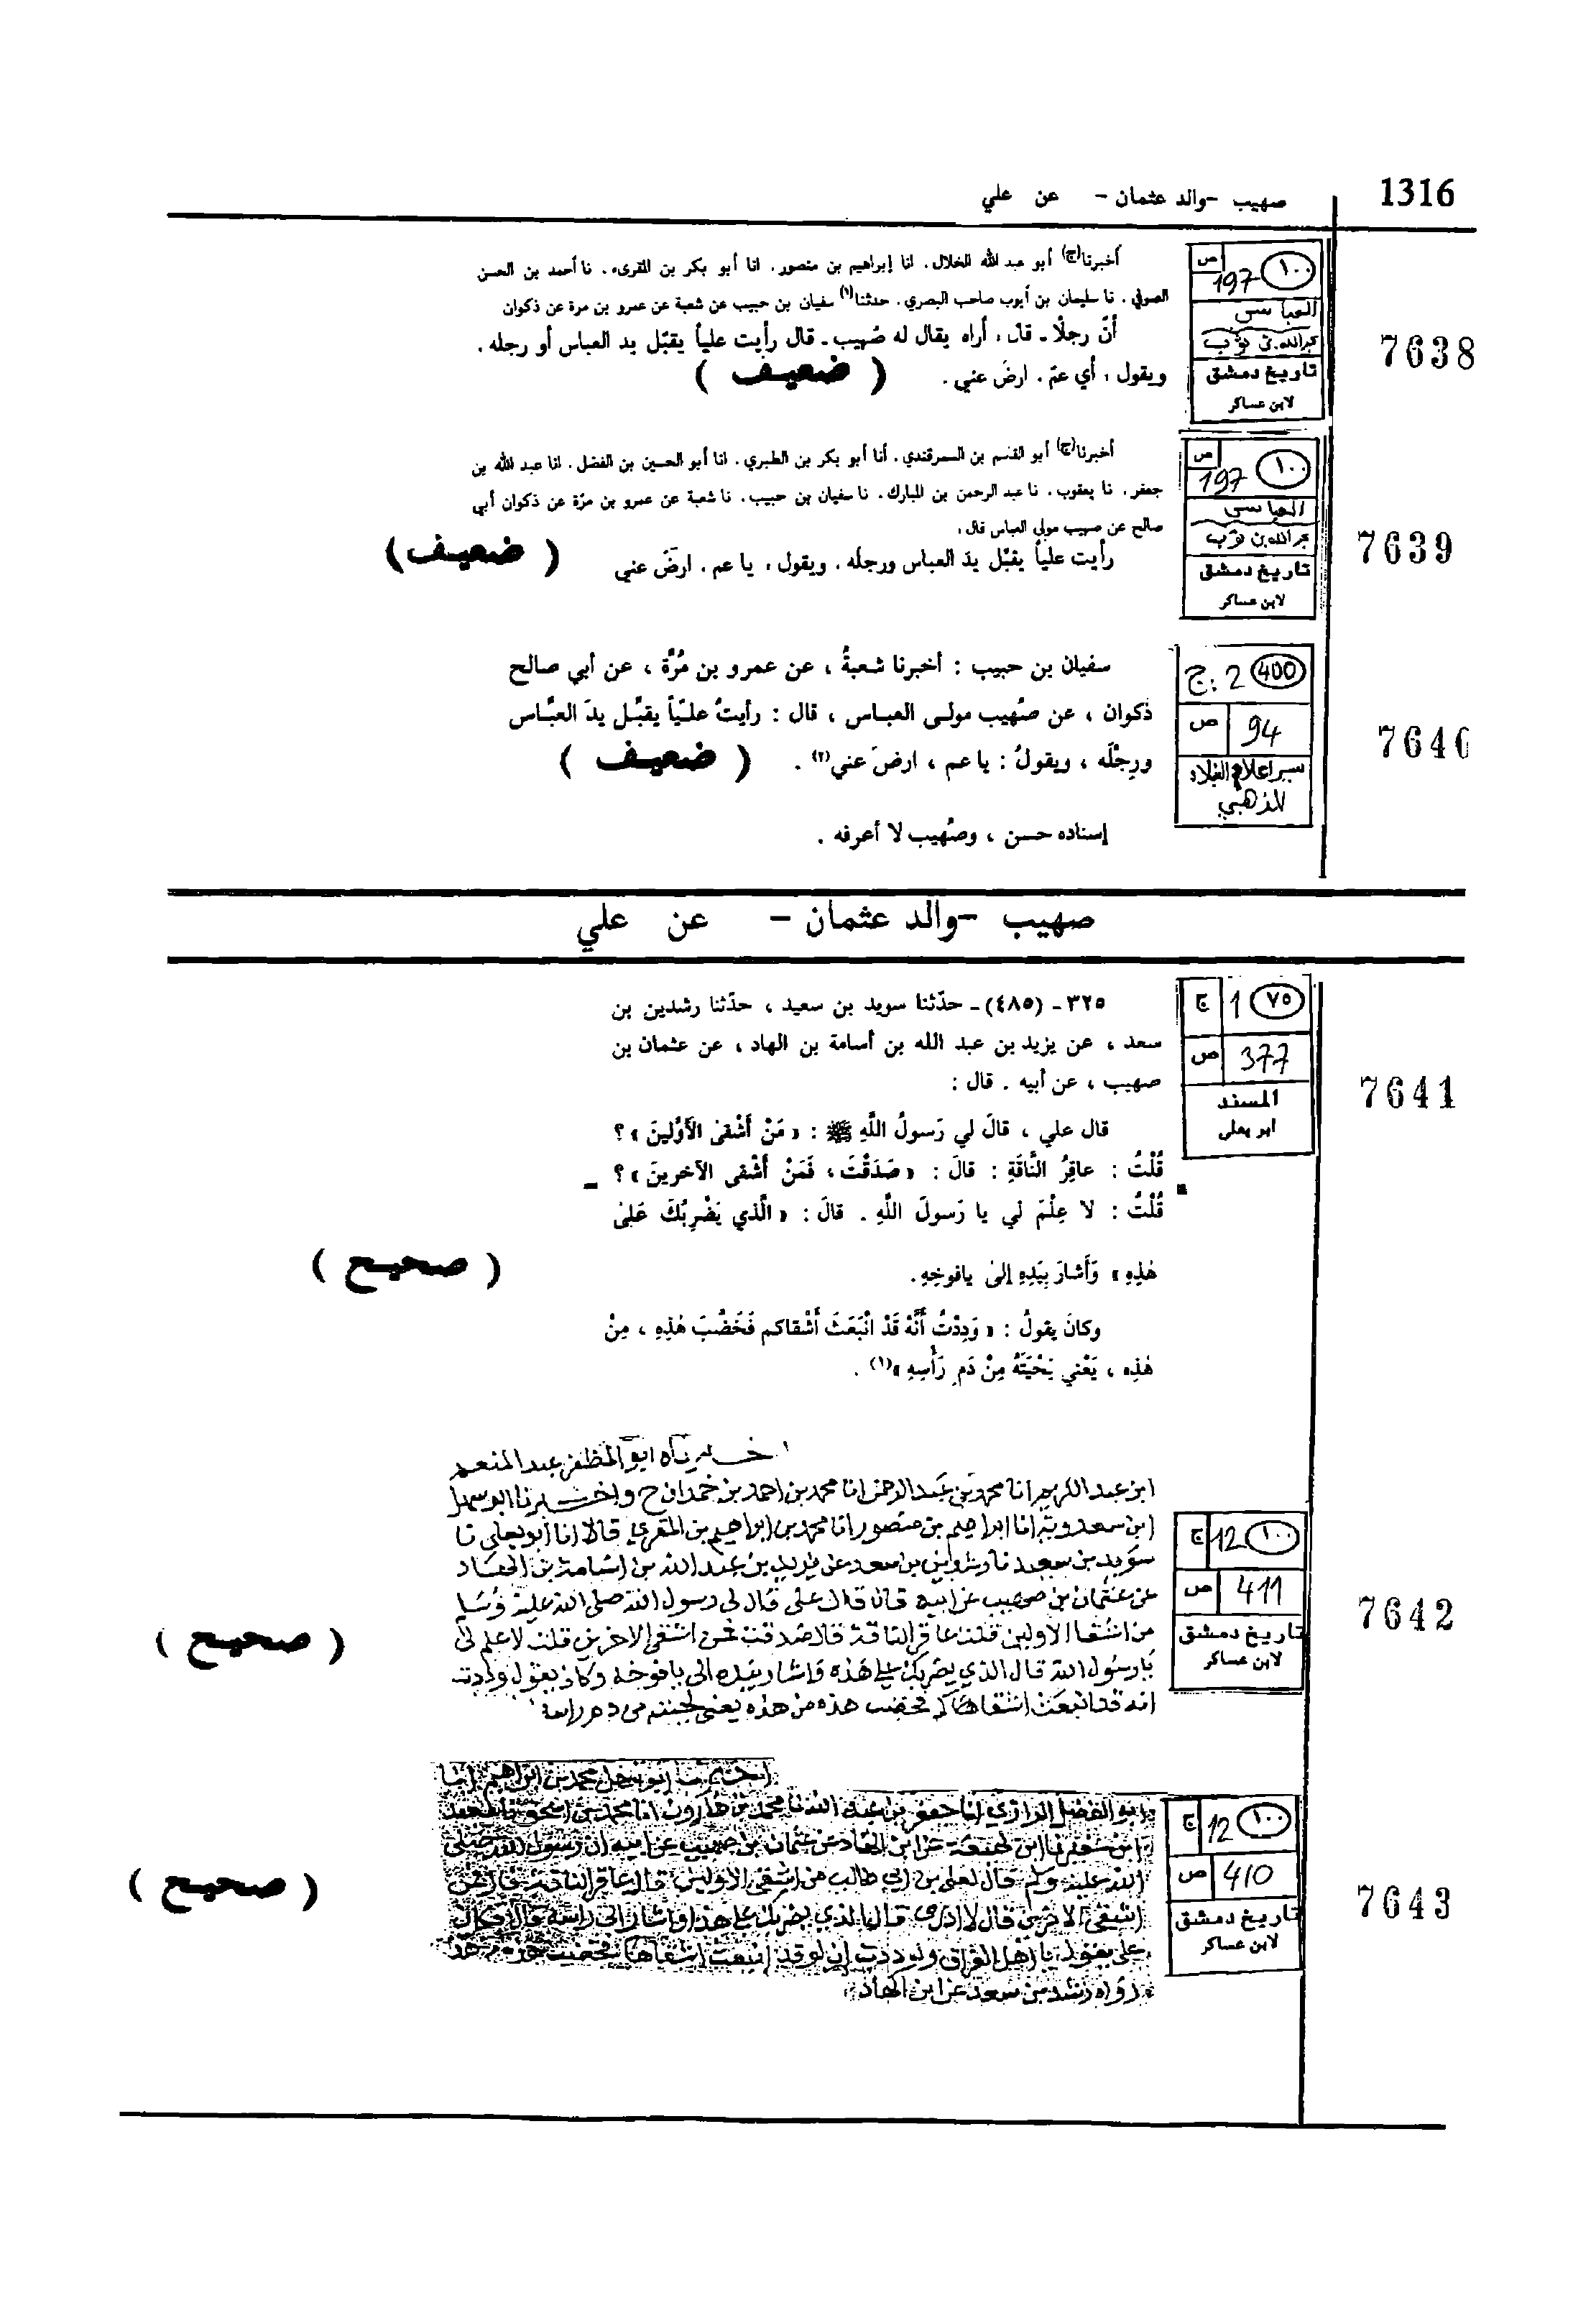 1316
صهيب -والد عثمان- عن علي
7638
ص ١٠٠
197
تاريخ دمشق
لابن عساكر
أخبرنا(ح) أبو عبد الله الخلال. انا إبراهيم بن منصور. انا أبو بكر بن المقرىء. نا أحمد بن الحسن
الصوفي. نا سليمان بن أيوب صاحب البصري. حدثنا(١) سفيان بن حبيب عن شعبة عن عمرو بن مرة عن ذكوان
أنّ رجلًا ـ قال، أراه يقال له صُهيب ـ قال رأيت علياً يقبّل يد العباس أو رجله.
ويقول، أي عمّ. ارضَ عني. ( ضعيف )
7639
ص ١٠٠
197
تاريخ دمشق
لابن عساكر
أخبرنا(ح) أبو القسم بن السمرقندي. أنا أبو بكر بن الطبري. انا أبو الحسين بن الفضل. انا عبد الله بن
جعفر. نا يعقوب. نا عبد الرحمن بن المبارك. نا سفيان بن حبيب. نا شعبة عن عمرو بن مرّة عن ذكوان أبي
صالح عن صهيب مولى العباس قال،
رأيت علياً يقبّل يدَ العباس ورجله. ويقول، يا عم. ارضَ عني ( ضعيف )
7640
ج: 2 400
ص 94
سير اعلام النبلاء
للذهبي
سفيان بن حبيب : أخبرنا شعبةُ ، عن عمرو بن مُرَّة ، عن أبي صالح
ذكوان ، عن صُهيب مولى العباس ، قال : رأيتُ عليّاً يقبِّل يدَ العبَّاس
ورِجْلَه ، ويقولُ : يا عم ، ارضَ عني(٢) . ( ضعيف )
إسناده حسن ، وصُهيب لا أعرفه .
صهيب -والد عثمان- عن علي
7641
ج 1 ٧٥
ص 377
المسند
ابو يعلى
٣٢٥ـ (٤٨٥)ـ حدّثنا سويد بن سعيد ، حدّثنا رشدين بن
سعد ، عن يزيد بن عبد الله بن أسامة بن الهاد ، عن عثمان بن
صهيب ، عن أبيه . قال :
قال علي ، قالَ لي رَسولُ اللَّهِ ﷺ : « مَنْ أَشْقىٰ الأَوَّلينَ » ؟
قُلْتُ : عاقِرُ النَّاقَةِ : قالَ : « صَدَقْتَ ، فَمَنْ أَشْقى الآخرينَ » ؟
قُلْتُ : لا عِلْمَ لي يا رَسولَ اللَّهِ . قالَ : « الَّذي يَضْرِبُكَ عَلىٰ
هٰذِهِ » وَأَشارَ بِيَدِهِ إلىٰ يافوخِهِ. ( صحيح )
وكانَ يقولُ : « وَدِدْتُ أَنَّهُ قَدْ انْبَعَثَ أَشْقاكم فَخَضَّبَ هٰذِهِ ، مِنْ
هٰذِهِ ، يَعْني لِحْيَتَهُ مِنْ دَمِ رَأْسِهِ »(١) .
7642
ج 12 ١٠٠
ص 411
تاريخ دمشق
لابن عساكر
اخبرناه ابو المظفر عبد المنعم
ابن عبد الكريم انا محمد بن عبد الرحمن انا محمد بن احمد بن حمدان ح واخبرنا ابو سهل
ابن سعدويه انا ابراهيم بن منصور انا محمد بن ابراهيم بن المقري قالا انا ابو يعلى نا
سويد بن سعيد نا رشدين بن سعد عن يزيد بن عبد الله بن اسامة بن الهاد
عن عثمان بن صهيب عن ابيه قال قال علي قال لي رسول الله صلى الله عليه وسلم
من اشقا الاولين قلت عاقر الناقة قال صدقت فمن اشقى الاخرين قلت لا علم لي
يا رسول الله قال الذي يضربك على هذه واشار بيده الى يافوخه وكان يقول وددت
انه قد انبعث اشقاكم فخضب هذه من هذه يعني لحيته من دم راسه
( صحيح )
7643
ج 12 ١٠٠
ص 410
تاريخ دمشق
لابن عساكر
اخبرنا ابو سهل محمد بن ابراهيم انا
ابو الفضل الرازي انا جعفر بن عبد الله نا محمد بن هارون انا محمد بن اسحق
ابن لهيعة عن ابن الهاد عن عثمان بن صهيب عن ابيه ان رسول الله صلى
الله عليه وسلم قال لعلي بن ابي طالب من اشقى الاولين قال عاقر الناقة قال فمن
اشقى الاخرين قال لا ادري قال الذي يضربك على هذا واشار الى راسه قال فكان
علي يقول يا اهل العراق ولوددت ان لو قد انبعث اشقاها فخضب هذه من هذه
رواه رشد بن سعد عن ابن الهاد
( صحيح )